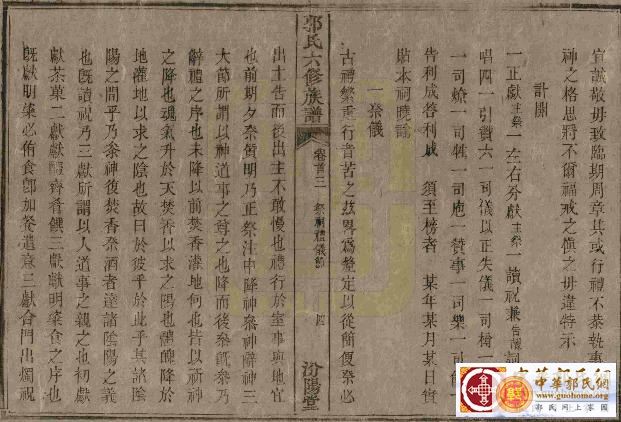 宜誠敬毋致臨期周章其或行禮不恭執事
神之格思將不爾福戒之愼之毋違特示
計開
一正獻主祭一左右分獻主祭一讀祝兼告
唱四一引贊六一司儀以正失儀一司樁一
一司燎一司牲一司庖一贊事一司樂一司
告利成答利成 須至榜者 某年某月某日衘
貼本祠曉諭
一祭儀
古禮繁重行者苦之茲畧爲釐定以從簡復祭必
郭氏六修族譜 卷首三 祭祠禮儀節 四 汾陽堂
出主告而後出主不敢慢也禮行於室事與地宜
也前期夕奈質明乃正祭注中降神叅神辭神三
大節所謂以神道事之尊之也降而後叅旣叅乃
辭禮之序也未降以前焚香灌地何也皆以祈神
之降也魂氣升於天焚香以求之陽也體魄降於
地灌地以求之陰也故曰於彼乎於此乎其諸陰
陽之間乎乃叅神復焚香祭酒者達諸陰陽之義
也旣讀祝乃三獻所謂以人道事之親之也初獻
獻茶菓二獻獻醴齊肴饌三獻獻明粢食之序也
旣獻明粢必侑食卽加餐遺意三獻合門出燭祝
中華郭氏網
www.guohome.org
郭氏網上家園